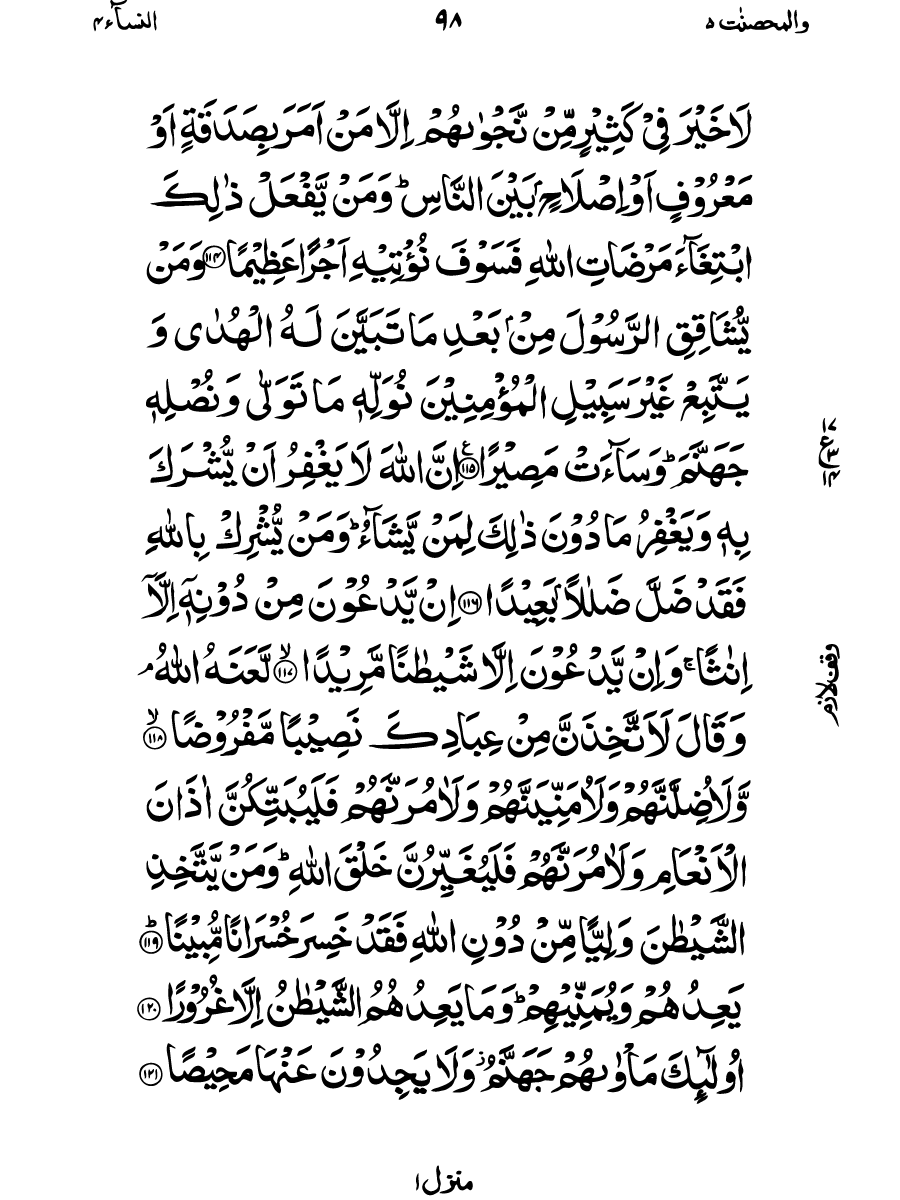 والمحصنٰت ٥
٩٨
النسآء ٤
لَا خَيْرَ فِيْ كَثِيْرٍ مِّنْ نَّجْوٰىهُمْ اِلَّا مَنْ اَمَرَ بِصَدَقَةٍ اَوْ
مَعْرُوْفٍ اَوْ اِصْلَاحٍۭ بَيْنَ النَّاسِ ؕ وَمَنْ يَّفْعَلْ ذٰلِكَ
ابْتِغَآءَ مَرْضَاتِ اللّٰهِ فَسَوْفَ نُؤْتِيْهِ اَجْرًا عَظِيْمًا ﴿١١٤﴾ وَمَنْ
يُّشَاقِقِ الرَّسُوْلَ مِنْۢ بَعْدِ مَا تَبَيَّنَ لَهُ الْهُدٰى وَ
يَتَّبِعْ غَيْرَ سَبِيْلِ الْمُؤْمِنِيْنَ نُوَلِّهٖ مَا تَوَلّٰى وَنُصْلِهٖ
جَهَنَّمَ ؕ وَسَآءَتْ مَصِيْرًا ﴿١١٥﴾ اِنَّ اللّٰهَ لَا يَغْفِرُ اَنْ يُّشْرَكَ
بِهٖ وَيَغْفِرُ مَا دُوْنَ ذٰلِكَ لِمَنْ يَّشَآءُ ؕ وَمَنْ يُّشْرِكْ بِاللّٰهِ
فَقَدْ ضَلَّ ضَلٰلًاۢ بَعِيْدًا ﴿١١٦﴾ اِنْ يَّدْعُوْنَ مِنْ دُوْنِهٖۤ اِلَّاۤ
اِنٰثًا ۚ وَاِنْ يَّدْعُوْنَ اِلَّا شَيْطٰنًا مَّرِيْدًا ﴿١١٧﴾ۙ لَّعَنَهُ اللّٰهُ ۘ
وَقَالَ لَاَتَّخِذَنَّ مِنْ عِبَادِكَ نَصِيْبًا مَّفْرُوْضًا ﴿١١٨﴾ۙ
وَّلَاُضِلَّنَّهُمْ وَلَاُمَنِّيَنَّهُمْ وَلَاٰمُرَنَّهُمْ فَلَيُبَتِّكُنَّ اٰذَانَ
الْاَنْعَامِ وَلَاٰمُرَنَّهُمْ فَلَيُغَيِّرُنَّ خَلْقَ اللّٰهِ ؕ وَمَنْ يَّتَّخِذِ
الشَّيْطٰنَ وَلِيًّا مِّنْ دُوْنِ اللّٰهِ فَقَدْ خَسِرَ خُسْرَانًا مُّبِيْنًا ﴿١١٩﴾ؕ
يَعِدُهُمْ وَيُمَنِّيْهِمْ ؕ وَمَا يَعِدُهُمُ الشَّيْطٰنُ اِلَّا غُرُوْرًا ﴿١٢٠﴾
اُولٰٓئِكَ مَاْوٰىهُمْ جَهَنَّمُ ۫ وَلَا يَجِدُوْنَ عَنْهَا مَحِيْصًا ﴿١٢١﴾
ع
وقف لازم
منزل ١